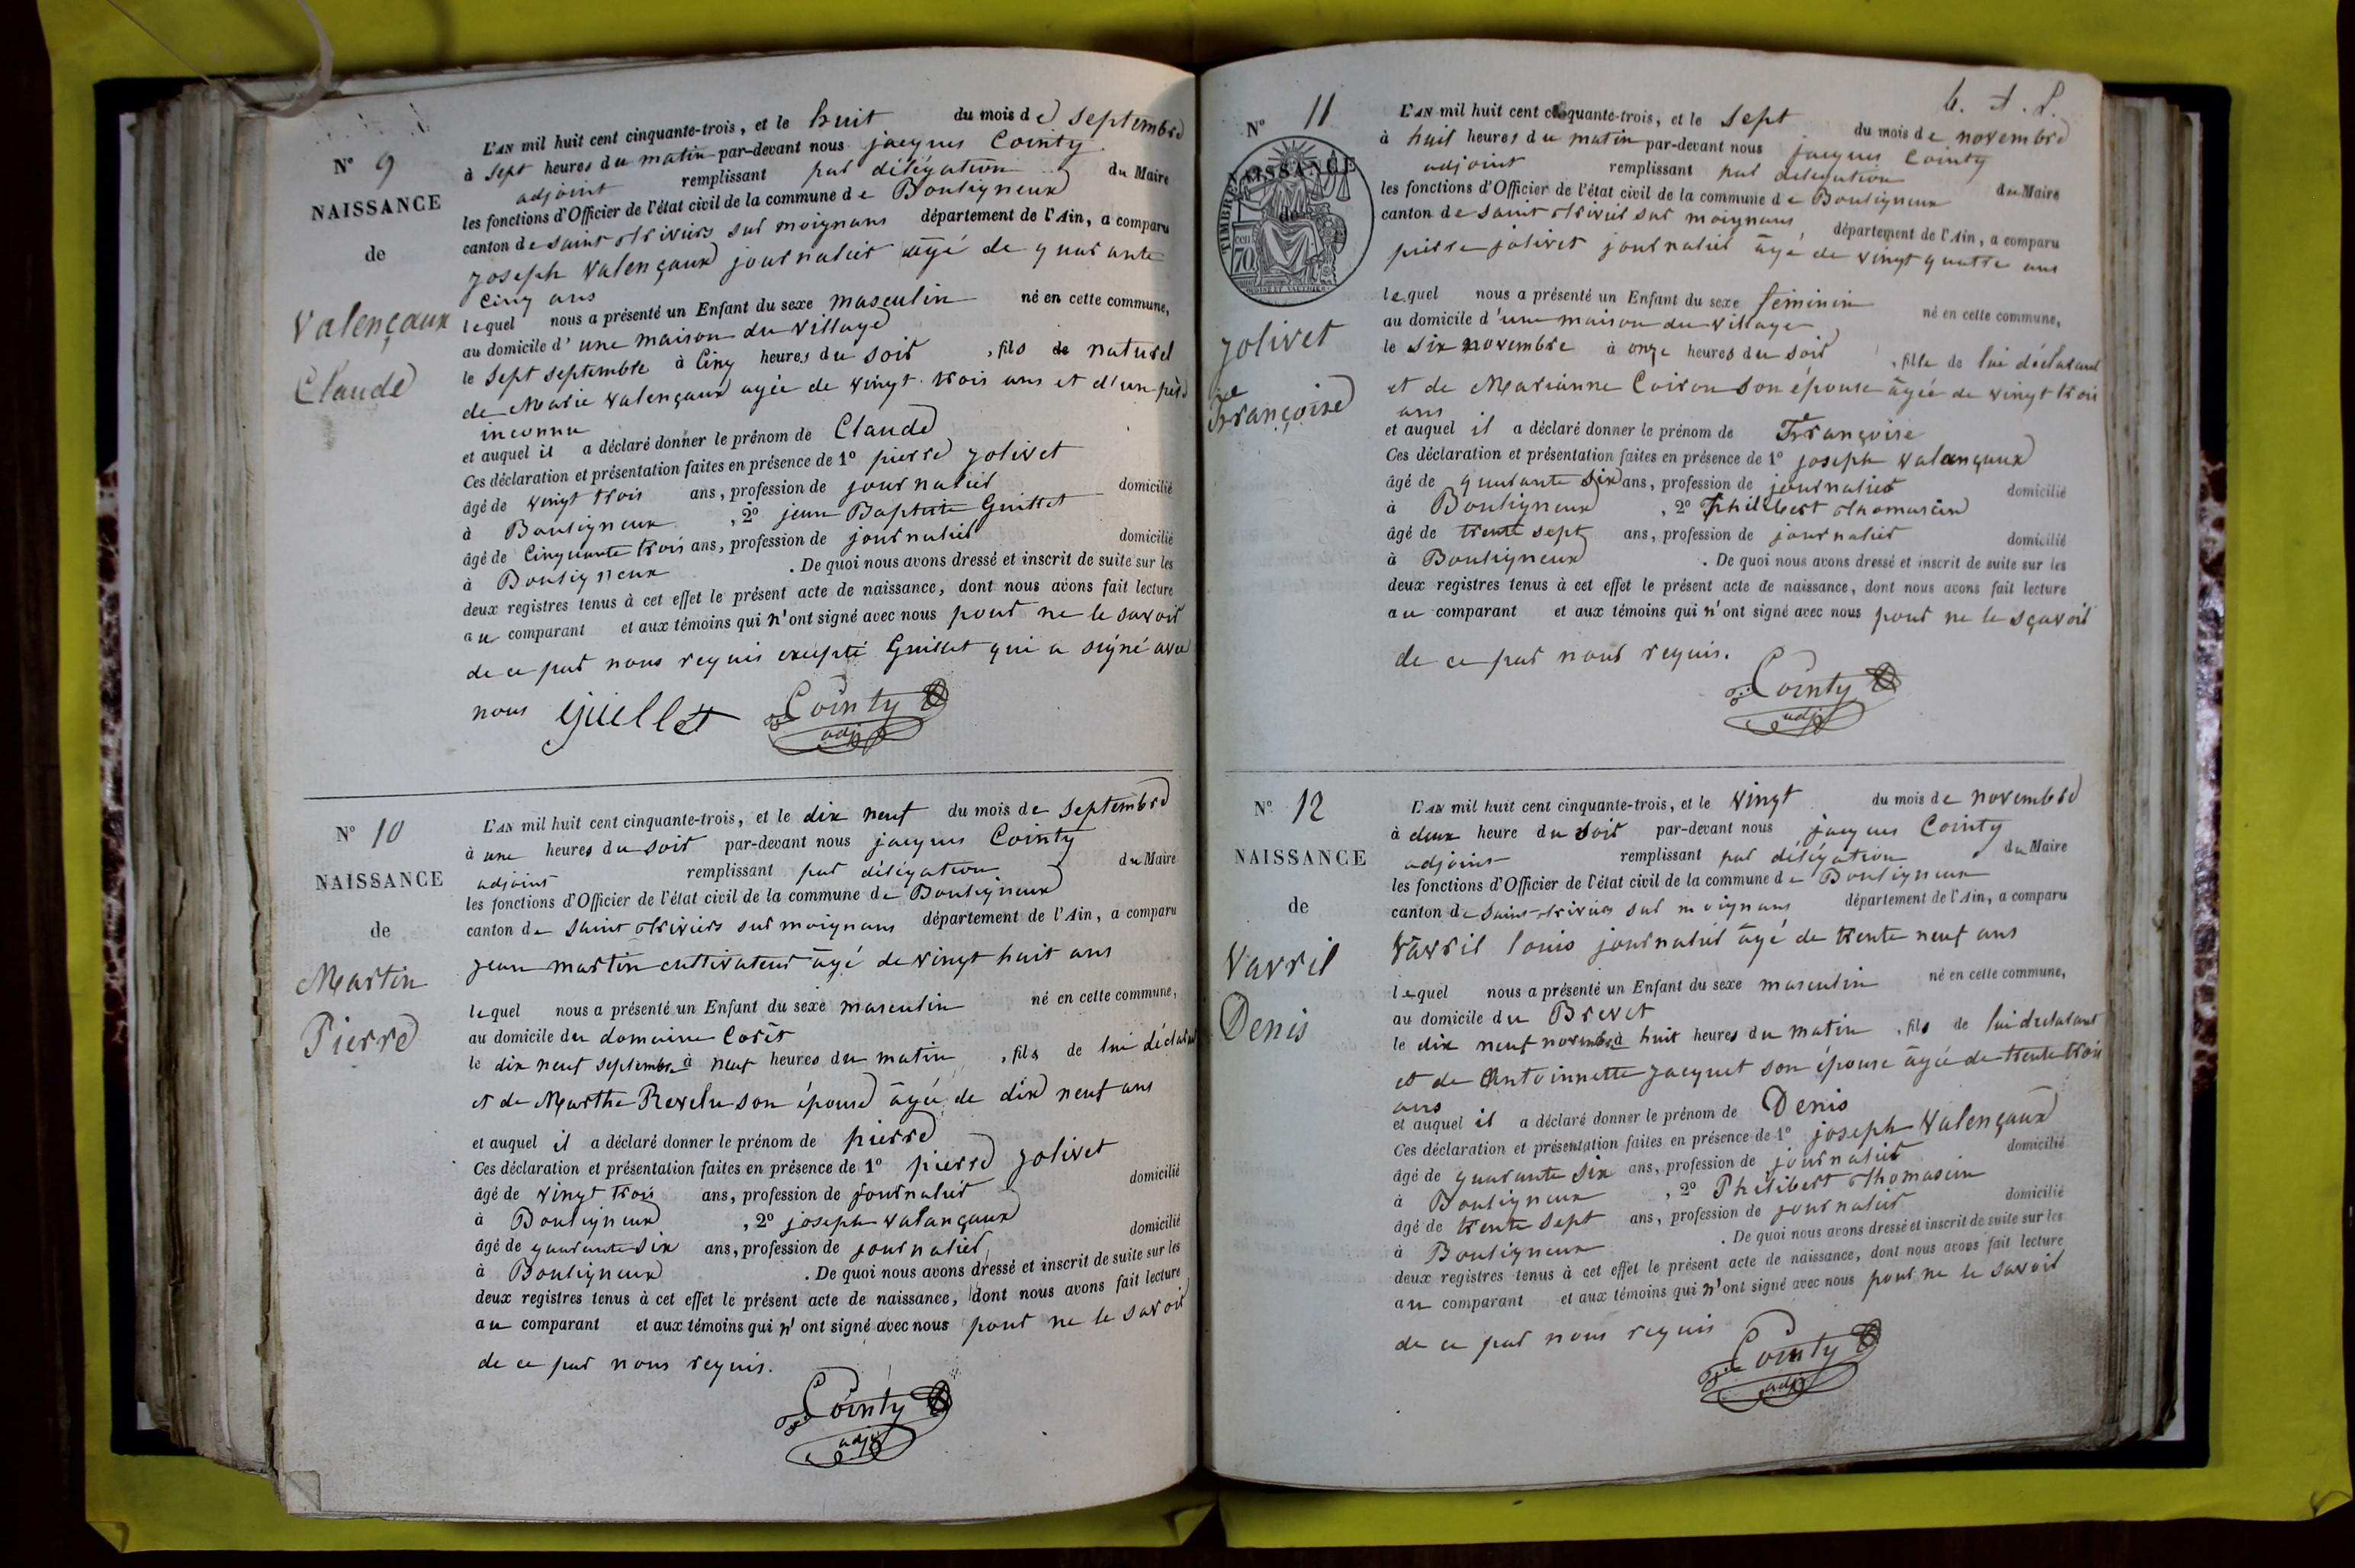 N° 9
NAISSANCE
de
Valençaux
Claude
L'AN mil huit cent cinquante-trois, et le huit du mois de septembre
à sept heures du matin par-devant nous jacques Cointy
adjoint remplissant par délégation du Maire
les fonctions d'Officier de l'état civil de la commune de Bouligneux
canton de saint trivier sur moignans département de l'Ain, a comparu
joseph valençaux journalier âgé de quarante
cinq ans
lequel nous a présenté un Enfant du sexe masculin né en cette commune,
au domicile d'une maison du village
le sept septembre à cinq heures du soir, fils de naturel
de Marie valençaux agée de vingt trois ans et d'un père
inconnu
et auquel il a déclaré donner le prénom de Claude
Ces déclaration et présentation faites en présence de 1° pierre jolivet
âgé de vingt trois ans, profession de journalier domicilié
à Bouligneux, 2° jean Baptiste Guillet
âgé de cinquante trois ans, profession de journalier domicilié
à Bouligneux. De quoi nous avons dressé et inscrit de suite sur les
deux registres tenus à cet effet le présent acte de naissance, dont nous avons fait lecture
au comparant et aux témoins qui n'ont signé avec nous pour ne le savoir
de ce par nous requis excepté Guillet qui a signé avec
nous Guillet Cointy
adj
N° 10
NAISSANCE
de
Martin
Pierre
L'AN mil huit cent cinquante-trois, et le dix neuf du mois de septembre
à une heures du soir par-devant nous jacques Cointy
adjoint remplissant par délégation du Maire
les fonctions d'Officier de l'état civil de la commune de Bouligneux
canton de saint trivier sur moignans département de l'Ain, a comparu
jean martin cultivateur âgé de vingt huit ans
lequel nous a présenté un Enfant du sexe masculin né en cette commune,
au domicile du domaine Corêt
le dix neuf septembre à neuf heures du matin, fils de lui déclarant
et de Marthe Revelu son épouse âgée de dix neuf ans
et auquel il a déclaré donner le prénom de pierre
Ces déclaration et présentation faites en présence de 1° pierre jolivet
âgé de vingt trois ans, profession de journalier domicilié
à Bouligneux, 2° joseph valançaux
âgé de quarante six ans, profession de journalier domicilié
à Bouligneux. De quoi nous avons dressé et inscrit de suite sur les
deux registres tenus à cet effet le présent acte de naissance, dont nous avons fait lecture
au comparant et aux témoins qui n'ont signé avec nous pour ne le savoir
de ce par nous requis.
Cointy
adj
6. A. P.
N° 11
NAISSANCE
de
TIMBRE
CEN
70
jolivet
Françoise
L'AN mil huit cent cinquante-trois, et le sept du mois de novembre
à huit heures du matin par-devant nous jacques Cointy
adjoint remplissant par délégation du Maire
les fonctions d'Officier de l'état civil de la commune de Bouligneux
canton de saint trivier sur moignans, département de l'Ain, a comparu
pierre jolivet journalier âgé de vingt quatre ans
lequel nous a présenté un Enfant du sexe féminin né en cette commune,
au domicile d'une maison du village
le six novembre à onze heures du soir, fille de lui déclarant
et de Marianne Coiron son épouse âgée de vingt trois
ans
et auquel il a déclaré donner le prénom de Françoise
Ces déclaration et présentation faites en présence de 1° joseph valançaux
âgé de quarante six ans, profession de journalier domicilié
à Bouligneux, 2° Philibert thomasin
âgé de trente sept ans, profession de journalier domicilié
à Bouligneux. De quoi nous avons dressé et inscrit de suite sur les
deux registres tenus à cet effet le présent acte de naissance, dont nous avons fait lecture
au comparant et aux témoins qui n'ont signé avec nous pour ne le sçavoir
de ce par nous requis.
Cointy
adj
N° 12
NAISSANCE
de
Vavril
Denis
L'AN mil huit cent cinquante-trois, et le vingt du mois de novembre
à deux heure du soir par-devant nous jacques Cointy
adjoint remplissant par délégation du Maire
les fonctions d'Officier de l'état civil de la commune de Bouligneux
canton de saint trivier sur moignans département de l'Ain, a comparu
Vavril louis journalier âgé de trente neuf ans
lequel nous a présenté un Enfant du sexe masculin né en cette commune,
au domicile du Brevet
le dix neuf novembre à huit heures du matin, fils de lui déclarant
et de Antoinnette jacquet son épouse âgée de trente trois
ans
et auquel il a déclaré donner le prénom de Denis
Ces déclaration et présentation faites en présence de 1° joseph Valençaux
âgé de quarante six ans, profession de journalier domicilié
à Bouligneux, 2° Philibert thomasin
âgé de trente sept ans, profession de journalier domicilié
à Bouligneux. De quoi nous avons dressé et inscrit de suite sur les
deux registres tenus à cet effet le présent acte de naissance, dont nous avons fait lecture
au comparant et aux témoins qui n'ont signé avec nous pour ne le savoir
de ce par nous requis
Cointy
adj